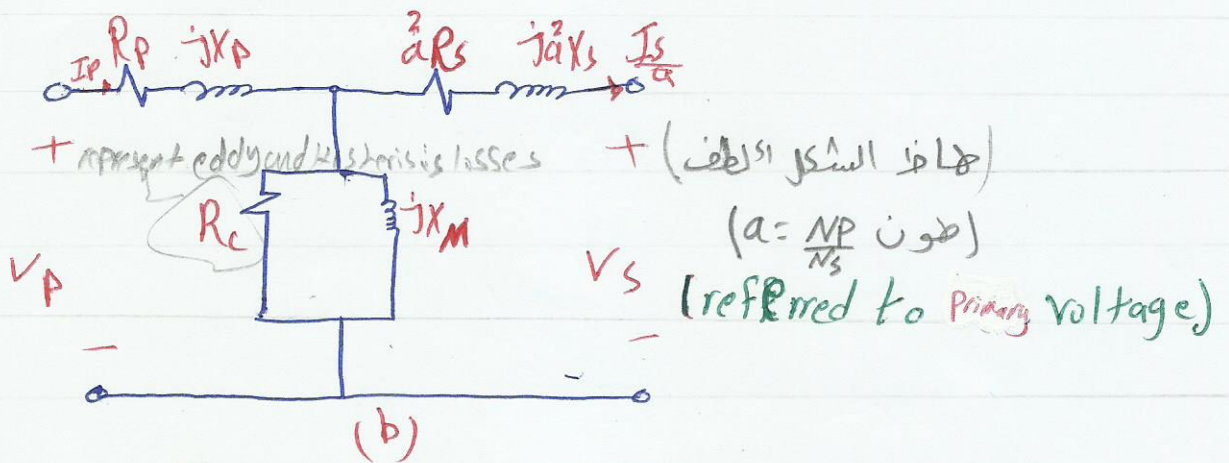 Ip Rp jXp a²Rs ja²Xs Is/a
+ represent eddy and hesterisis losses + (هاظ الشكل الطف
Rc jXM (هون a = NP/NS)
Vp Vs (referred to Primary voltage)
- -
(b)